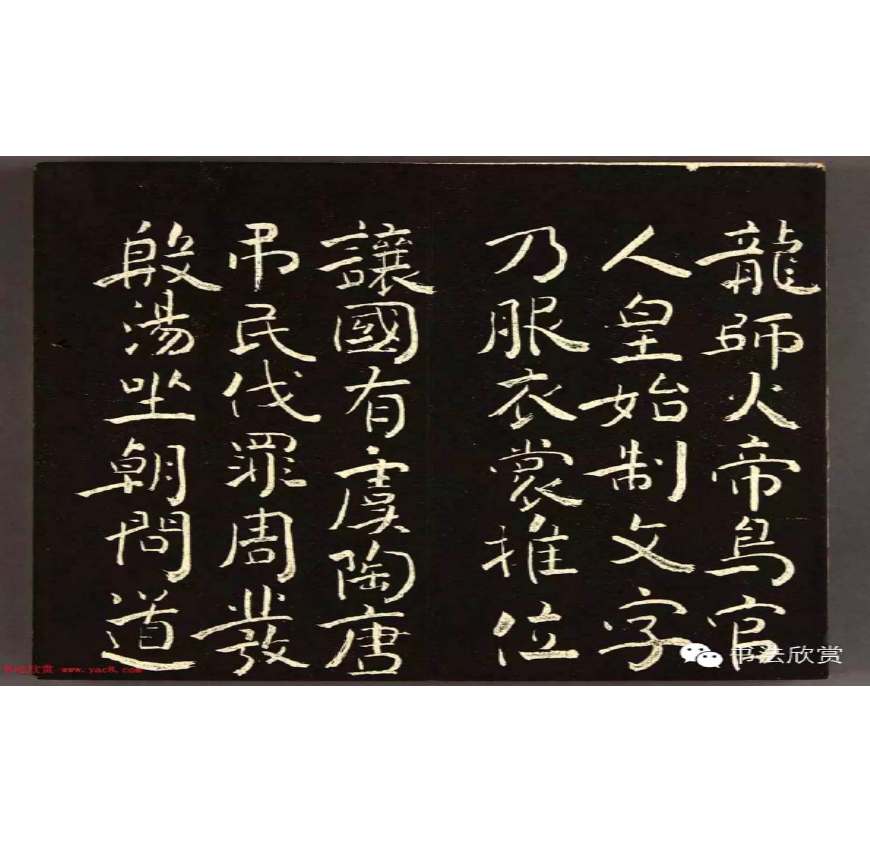 龍師火帝鳥官
人皇始制文字
乃服衣裳推位
讓國有虞陶唐
弔民伐罪周發
殷湯坐朝問道
书法欣赏
欣赏 www.yac8.com